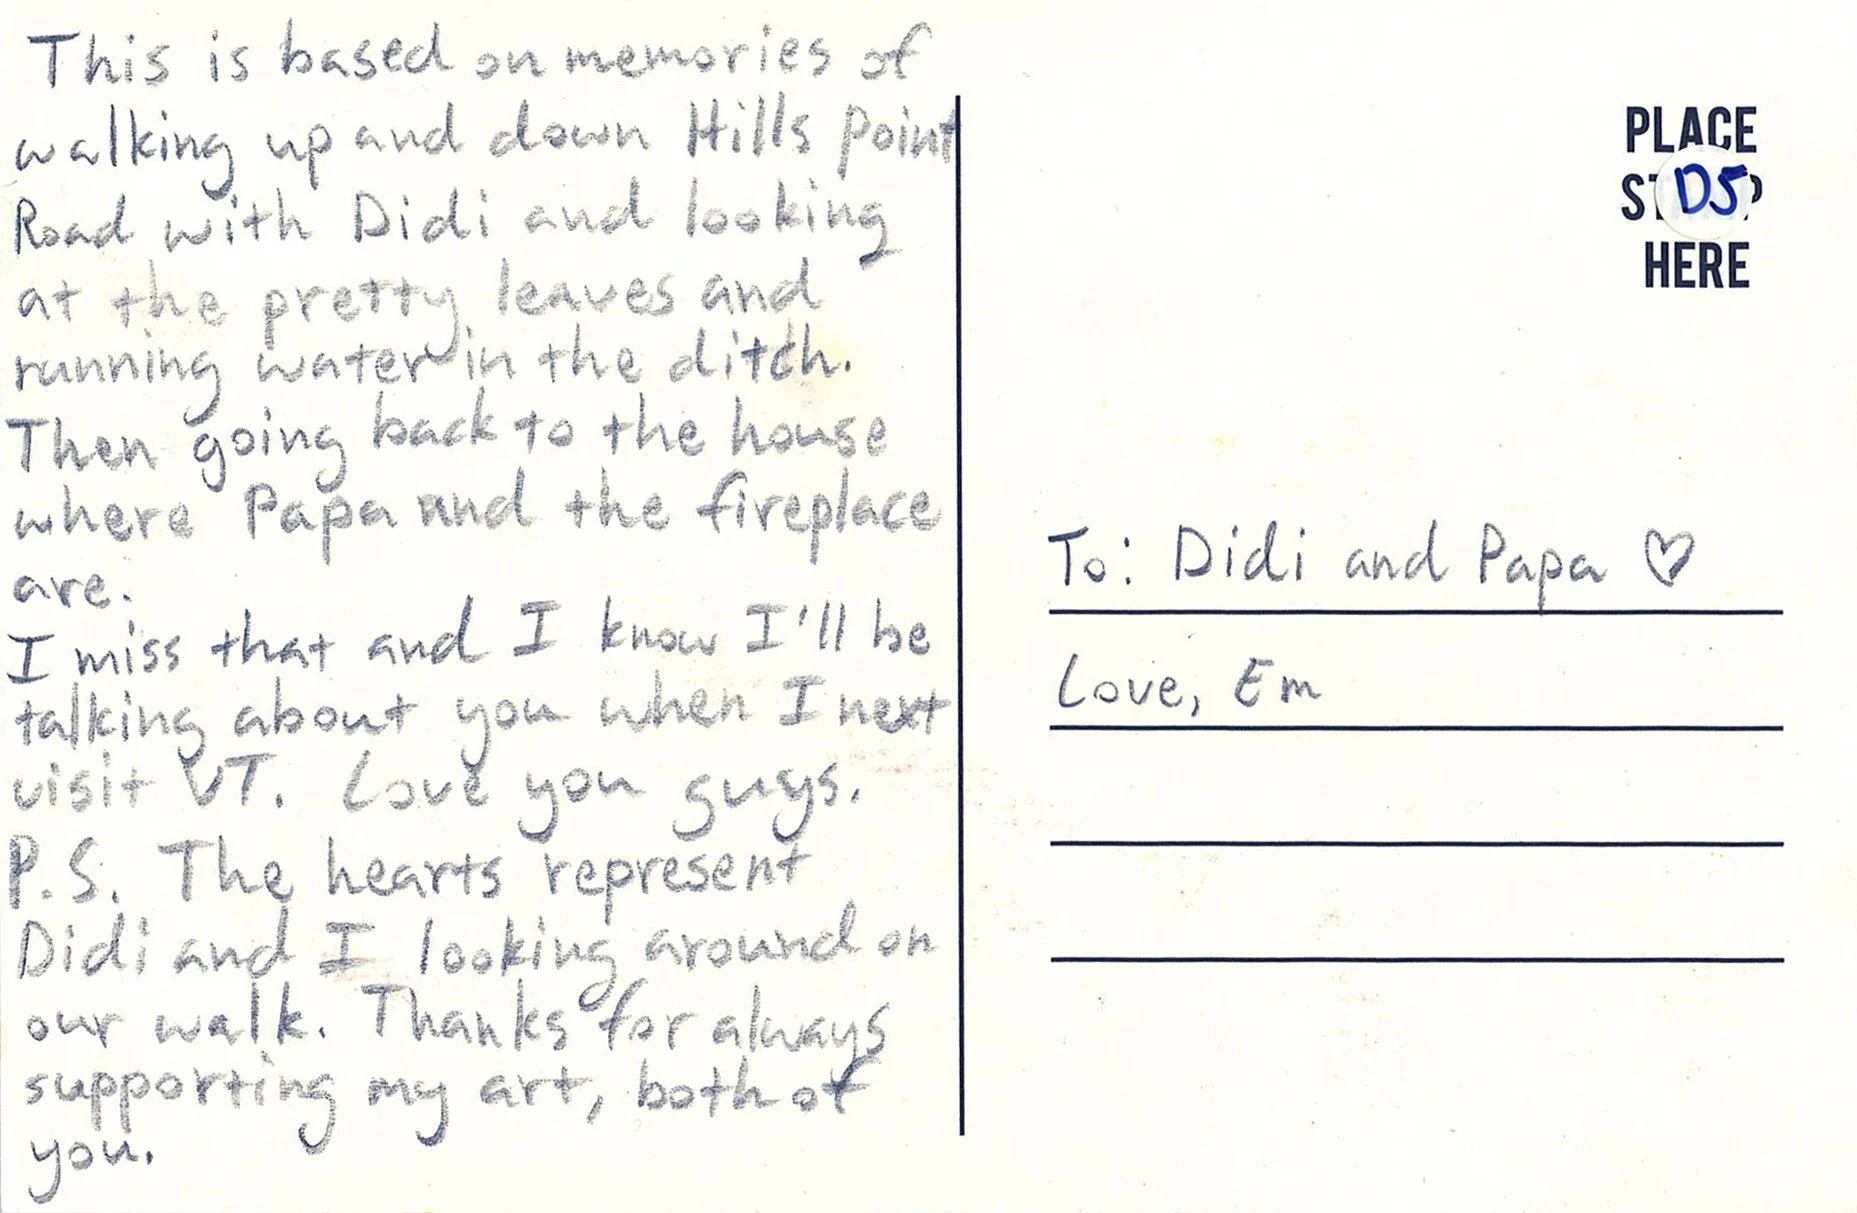 This is based on memories of
walking up and down Hills Point
Road with Didi and looking
at the pretty leaves and
running water in the ditch.
Then going back to the house
where Papa and the fireplace
are.
I miss that and I know I'll be
talking about you when I next
visit VT. Love you guys.
P.S. The hearts represent
Didi and I looking around on
our walk. Thanks for always
supporting my art, both of
you.
PLACE
D5
HERE
To: Didi and Papa ♡
Love, Em